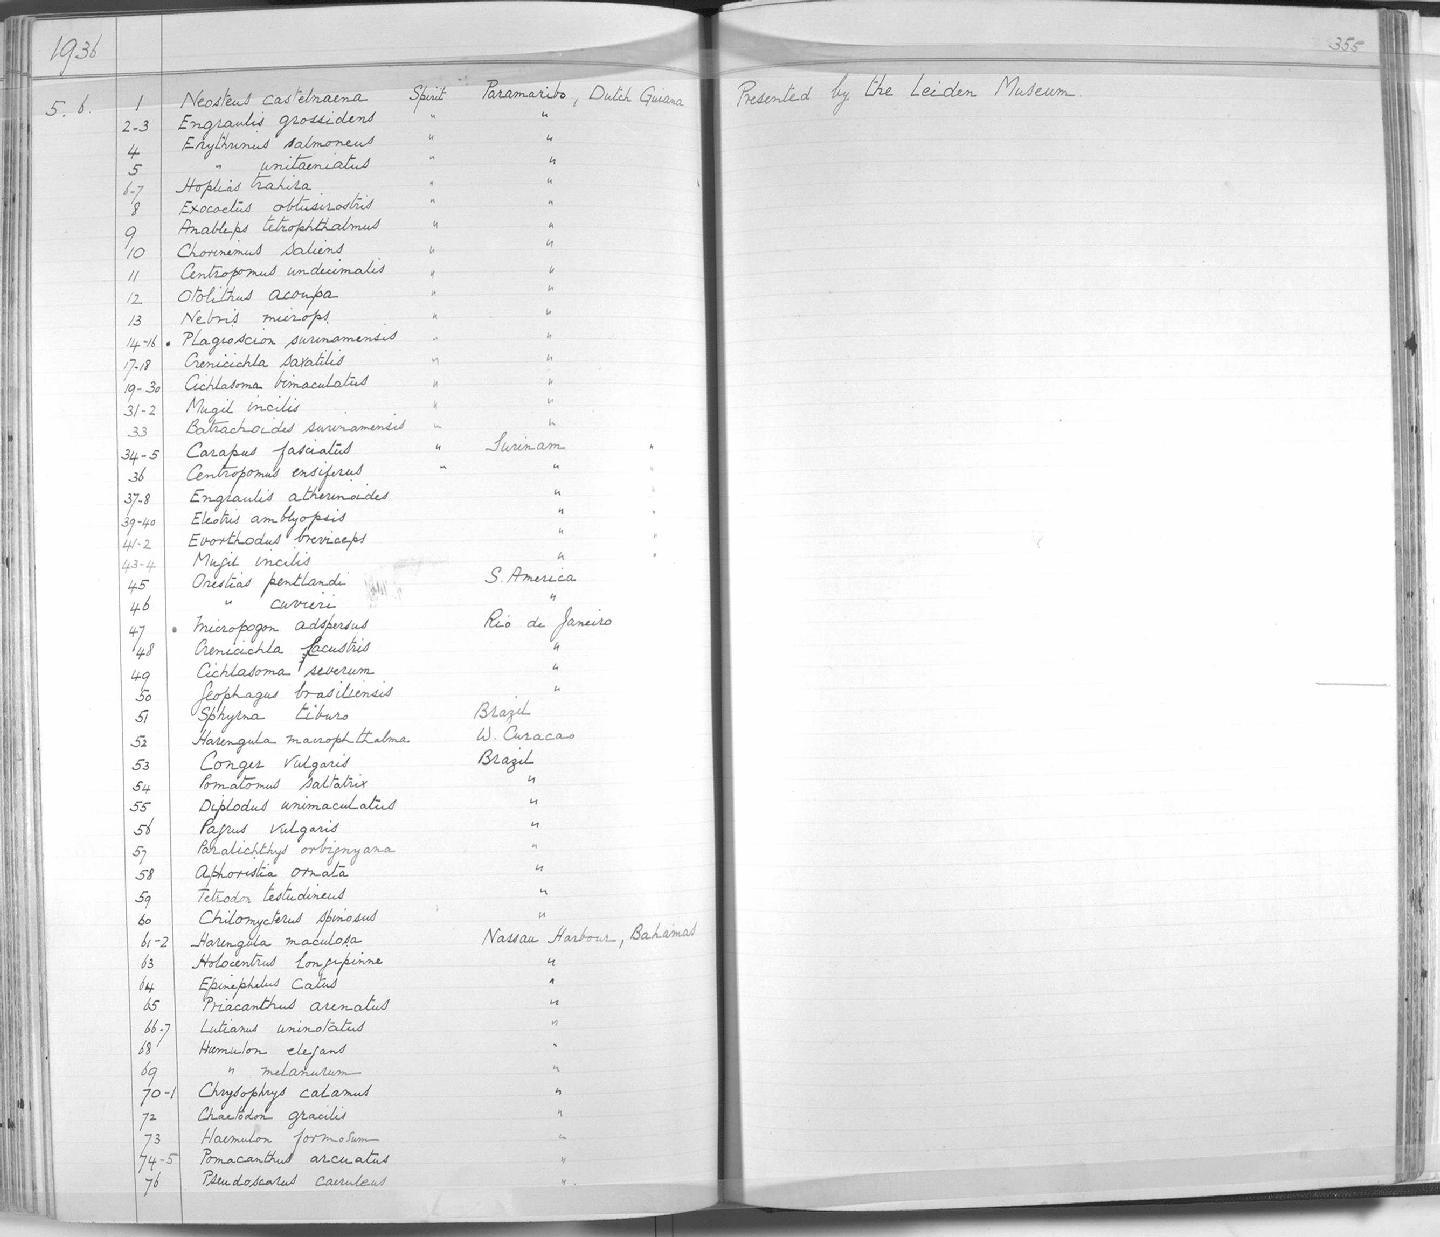 1936
355
5. 6. 1 Neosteus castelnaena Spirit Paramaribo, Dutch Guiana Presented by the Leiden Museum.
2-3 Engraulis grossidens " "
4 Erythrinus salmoneus " "
5 " unitaeniatus " "
6-7 Hoplias trahira " "
8 Exocoetus obtusirostris " "
9 Anableps tetrophthalmus " "
10 Chorinemus saliens " "
11 Centropomus undecimalis " "
12 Otolithus acoupa " "
13 Nebris microps " "
14-16 Plagioscion surinamensis " "
17-18 Crenicichla saxatilis " "
19-30 Cichlasoma bimaculatus " "
31-2 Mugil incilis " "
33 Batrachoides surinamensis " "
34-5 Carapus fasciatus " Surinam "
36 Centropomus ensiferus " " "
37-8 Engraulis atherinoides " "
39-40 Eleotris amblyopsis " "
41-2 Evorthodus breviceps " "
43-4 Mugil incilis " "
45 Orestias pentlandi S. America
46 " cuvieri "
47 Micropogon adspersus Rio de Janeiro
48 Crenicichla lacustris "
49 Cichlasoma severum "
50 Geophagus brasiliensis "
51 Sphyrna tiburo Brazil
52 Harengula macrophthalma W. Curacao
53 Conger vulgaris Brazil
54 Pomatomus saltatrix "
55 Diplodus unimaculatus "
56 Pagrus vulgaris "
57 Paralichthys orbignyana "
58 Aphoristia ornata "
59 Tetrodon testudineus "
60 Chilomycterus spinosus "
61-2 Harengula maculosa Nassau Harbour, Bahamas
63 Holocentrus longipinne "
64 Epinephelus catus "
65 Priacanthus arenatus "
66-7 Lutianus uninotatus "
68 Haemulon elegans "
69 " melanurum "
70-1 Chrysophrys calamus "
72 Chaetodon gracilis "
73 Haemulon formosum "
74-5 Pomacanthus arcuatus "
76 Pseudoscarus caeruleus "